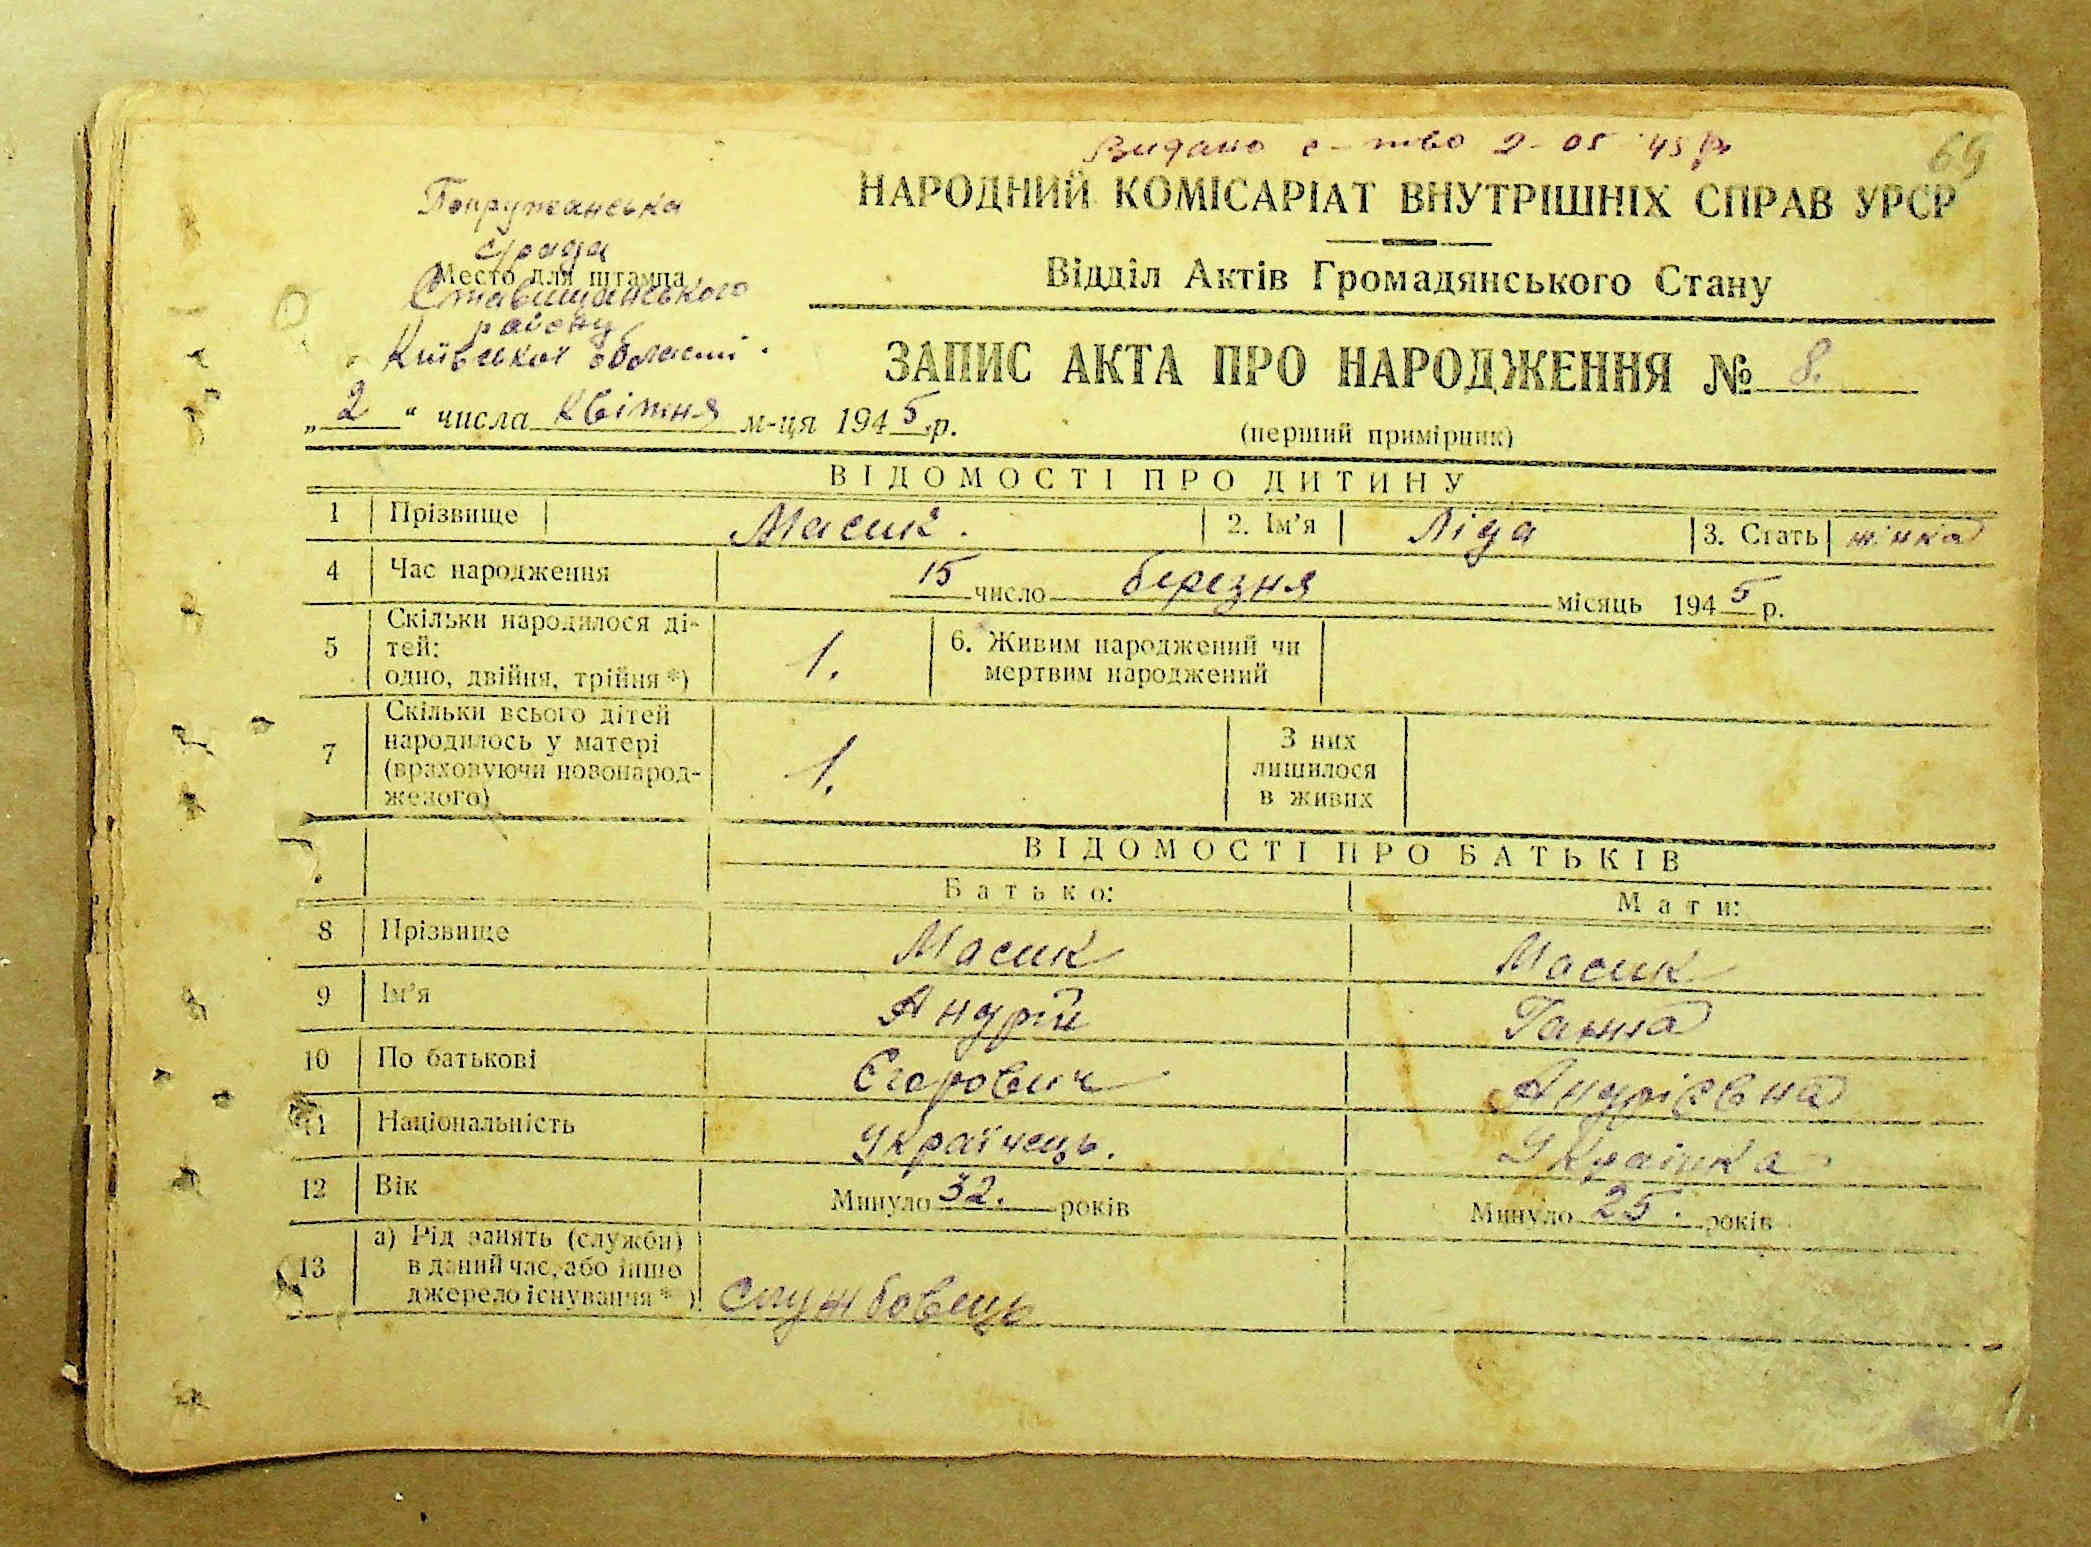 Видано с-тво 2-05 45 р
69
НАРОДНИЙ КОМІСАРІАТ ВНУТРІШНІХ СПРАВ УРСР
Відділ Актів Громадянського Стану
Попружанська
с/рада
Место для штампа
Ставищанського
району
Київської області.
ЗАПИС АКТА ПРО НАРОДЖЕННЯ № 8.
„ 2 " числа квітня м-ця 1945 р.
(перший примірник)
ВІДОМОСТІ ПРО ДИТИНУ
1 Прізвище Масик. 2. Ім'я Ліда 3. Стать жінка
4 Час народження 15 число березня місяць 1945 р.
5 Скільки народилося ді-
тей:
одно, двійня, трійня *) 1.
6. Живим народжений чи
мертвим народжений
7 Скільки всього дітей
народилось у матері
(враховуючи новонарод-
женого) 1.
З них
лишилося
в живих
ВІДОМОСТІ ПРО БАТЬКІВ
Батько: Мати:
8 Прізвище Масик Масик
9 Ім'я Андрій Ганна
10 По батькові Єгорович Андрієвна
11 Національність Українець. Українка
12 Вік Минуло 32. років Минуло 25. років
13 а) Рід занять (служби)
в даний час, або інше
джерело існування *) Службовець